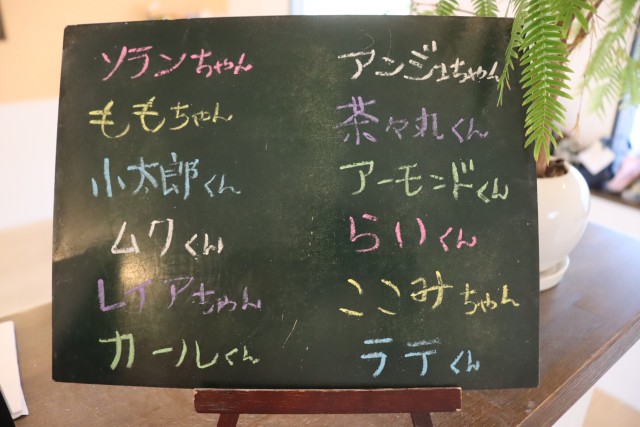 ソランちゃん
ももちゃん
小太郎くん
ムクくん
レイアちゃん
カールくん
アンジュちゃん
茶々丸くん
アーモンドくん
らいくん
ここみちゃん
ラテくん